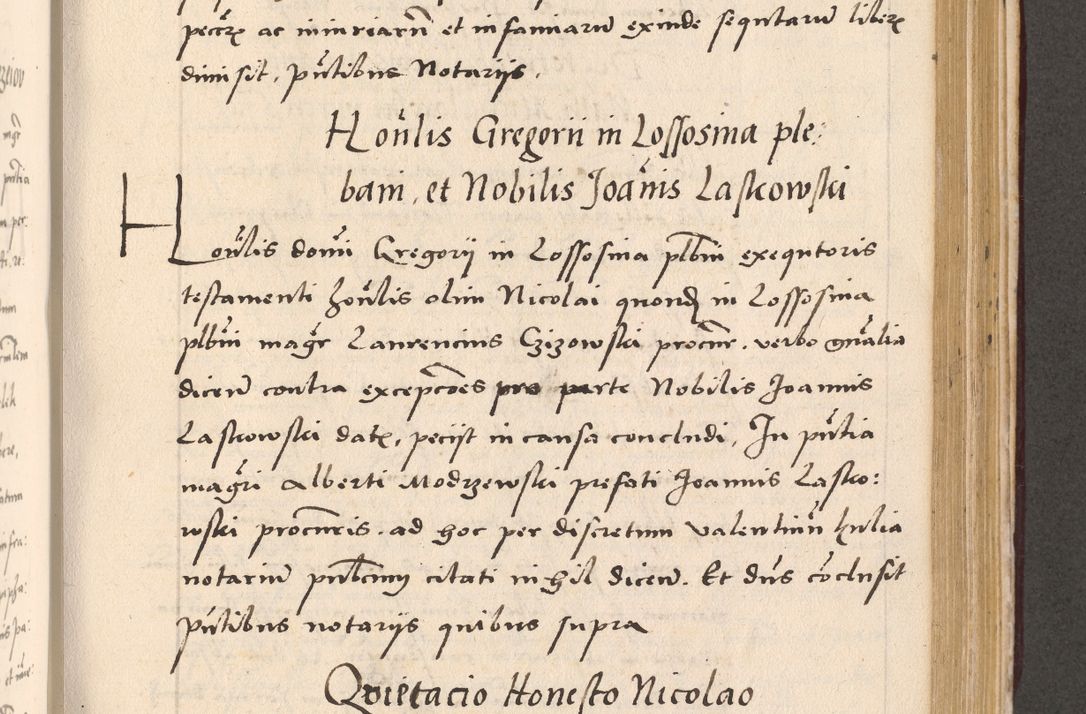 ac iniuriarū et infamiarū exinde sequtarū liberę
dimisit, pn̄tibus Notarijs.
Hon̄lis Gregorii in Lossosina ple:
bani, et Nobilis Joān̄is Laskowski
Hon̄lis domī Gregorij in Lossosina plb̄ni exequtoris
testamenti hon̄lis olim Nicolai quond in Lossosina
plb̄ni magr̄ Laurencius Czizowski procūr. verbo gn̄alia
dicen̄ contra excepcōes pro parte Nobilis Joannis
Laskowski datę, peciit in causa concludi, In pn̄tia
magr̄i Alberti Modrzewski prefati Joannis Lasko:
wski procūris. ad hoc per discretum Valentinū Kulia
notariū publicum citati nihil dicen̄. Et dn̄s cōclusit
pn̄tibus notarijs quibus supra
Quietacio Honesto Nicolao